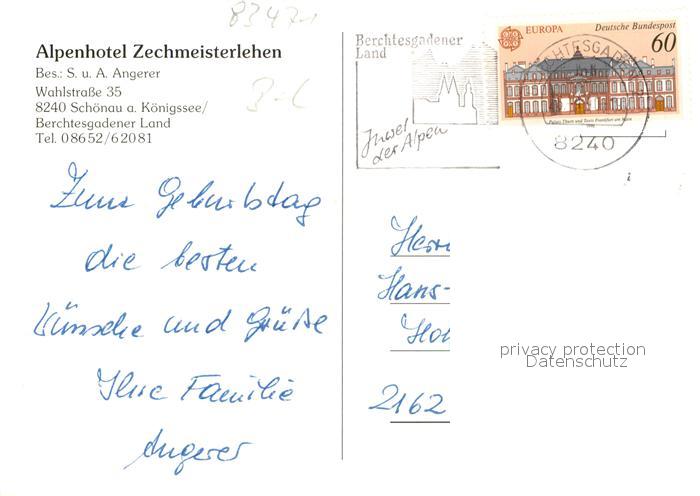 83471
Alpenhotel Zechmeisterlehen
Bes.: S. u. A. Angerer
Wahlstraße 35
8240 Schönau a. Königssee/
Berchtesgadener Land
Tel. 08652/62081
Zum Geburtstag
die besten
Wünsche und Grüße
Ihre Familie
Angerer
Berchtesgadener
Land
Juwel
der Alpen
EUROPA Deutsche Bundespost
60
Palais Thurn und Taxis Frankfurt am Main
1990
8240
i
Herrn
Hans-
2162
privacy protection
Datenschutz